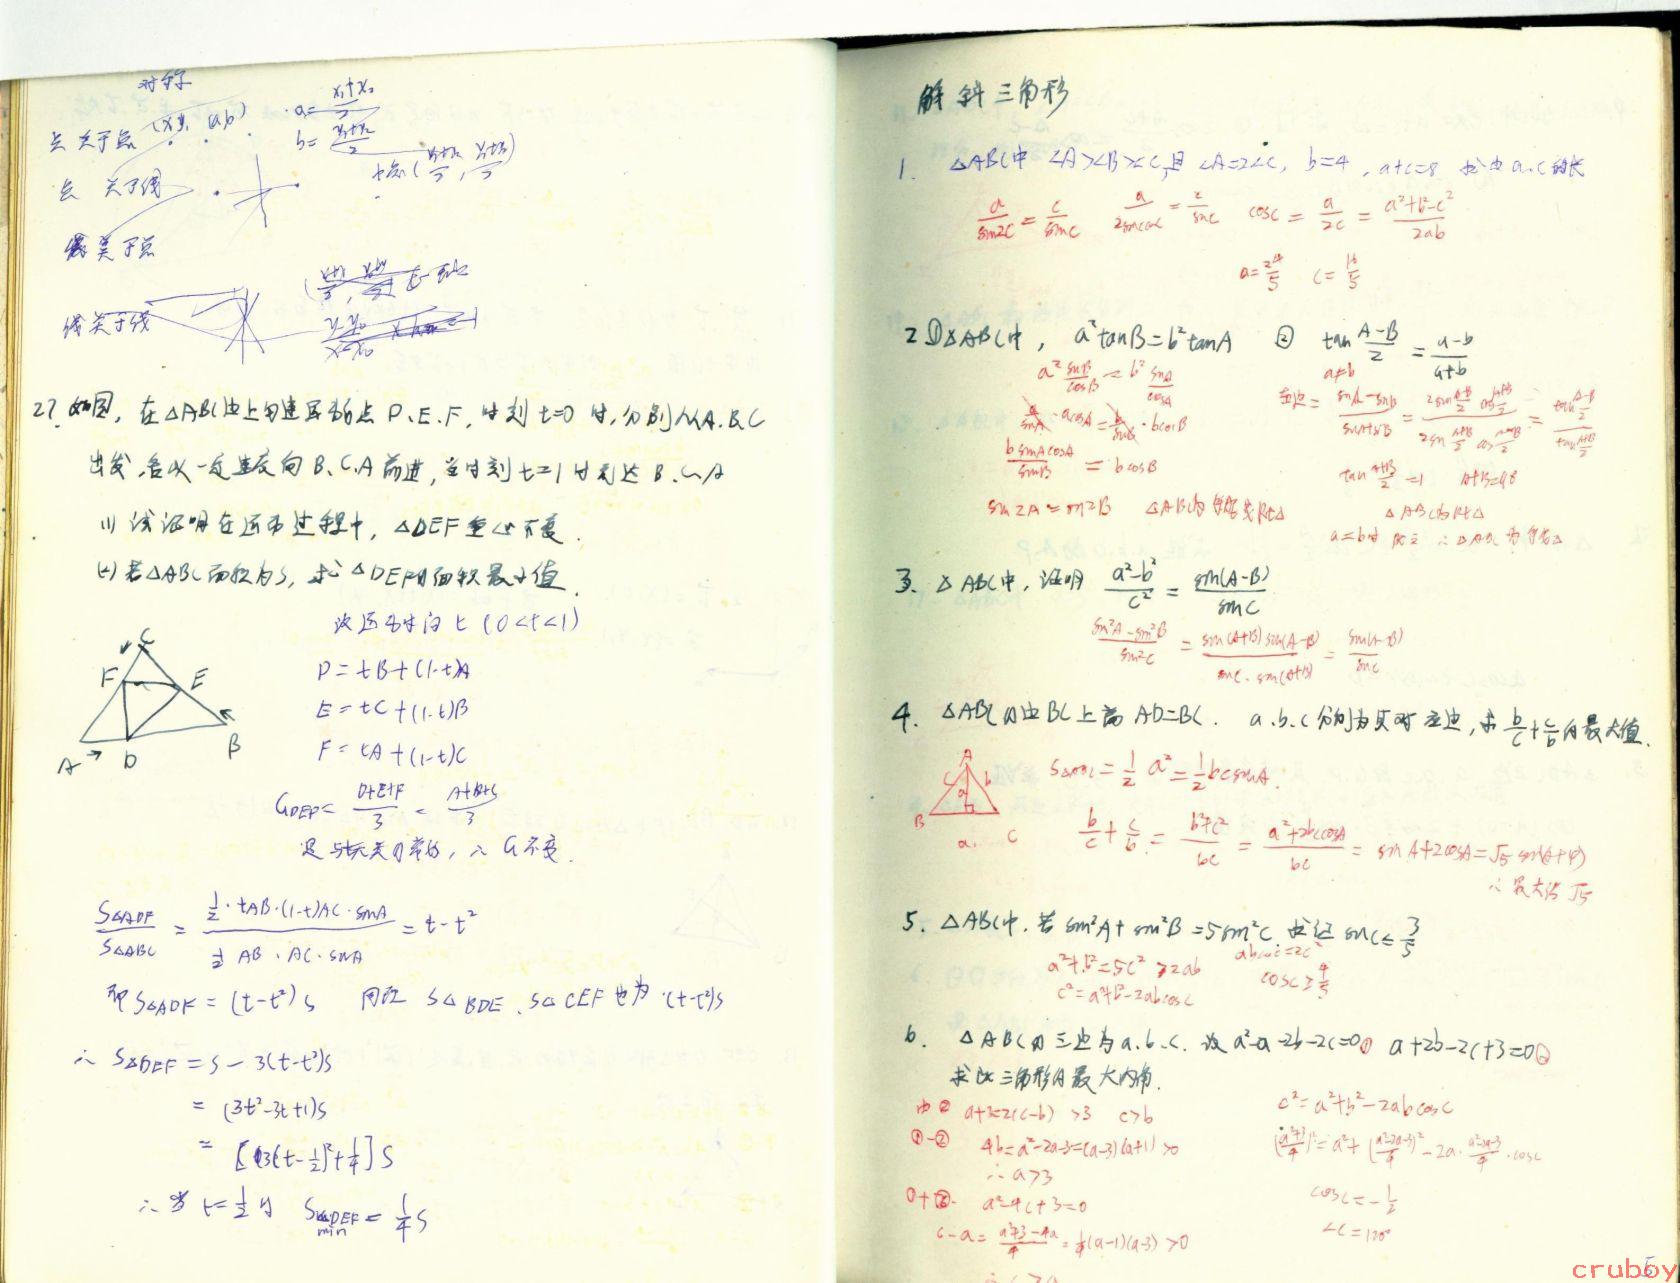 对称
点关于点 (x,y) (a,b)
a=
b=
点关于线
线关于点
线关于线
27.如图,在△ABC边上匀速运动的点D.E.F,时刻t=0时,分别从A.B.C
出发,各以一定速度向B.C.A前进,当时刻t=1时到达B.C.A
(1) 试证明在运动过程中,△DEF重心不变.
(2) 若△ABC面积为S,求△DEF的面积最小值.
设运动时间t (0<t<1)
D=tB+(1-t)A
E=tC+(1-t)B
F=tA+(1-t)C
C
F E
A D B
G_DEF = (D+E+F)/3 = (A+B+C)/3
是与t无关的常数,∴G不变.
S△ADF/S△ABC = (1/2·tAB·(1-t)AC·sinA)/(1/2 AB·AC·sinA) = t-t²
即 S△ADF=(t-t²)S 同理 S△BDE、S△CEF也为(t-t²)S
∴ S△DEF = S-3(t-t²)S
= (3t²-3t+1)S
= [3(t-1/2)²+1/4]S
∴当t=1/2时 S△DEF min = 1/4 S
解斜三角形
1. △ABC中 ∠A>∠B>∠C,且∠A=2∠C, b=4, a+c=8 求边a.c的长
a/sin2C = c/sinC a/2sinCcosC = c/sinC cosC = a/2c = (a²+b²-c²)/2ab
a=24/5 c=16/5
2 ①△ABC中, a²tanB=b²tanA ② tan (A-B)/2 = (a-b)/(a+b)
a² sinB/cosB = b² sinA/cosA a≠b
a/sinA·acosA = b/sinB·bcosB
左边= (sinA-sinB)/(sinA+sinB) = = tan (A-B)/2 / tan (A+B)/2
b sinA cosA/sinB = b cosB
tan (A+B)/2 =1 A+B=90
sin2A=sin2B △ABC为等腰或Rt△ △ABC为Rt△
a=b时 成立 ∴△ABC为等腰△
3. △ABC中,证明 (a²-b²)/c² = sin(A-B)/sinC
(sin²A-sin²B)/sin²C = sin(A+B)sin(A-B)/(sinC·sin(A+B)) = sin(A-B)/sinC
4. △ABC的边BC上高AD=BC. a.b.c分别为其对应边,求 b/c+c/b 的最大值.
A
c a b
B a C
S△ABC = 1/2 a² = 1/2 bcsinA
b/c + c/b = (b²+c²)/bc = (a²+2bccosA)/bc = sinA+2cosA=√5 sin(A+φ)
∴最大值√5
5. △ABC中.若sin²A+sin²B=5sin²C.求证 sinC≤3/5
a²+b²=5c² ≥2ab abcosC=2c²
c²=a²+b²-2abcosC cosC≥4/5
6. △ABC的三边为a.b.c. 设a²-a-2b-2c=0① a+2b-2c+3=0②
求此三角形的最大内角.
由② a+3=2(c-b) >3 c>b
①-② 4b=a²-2a-3=(a-3)(a+1)>0
∴a>3
①+② a²-4c+3=0
c-a= (a²+3-4a)/4 = 1/4(a-1)(a-3)>0
∴c>a
c²=a²+b²-2abcosC
((a²+3)/4)²=a²+((a²-2a-3)/4)²-2a·(a²-2a-3)/4·cosC
cosC=-1/2
∠C=120°
5
cruboy